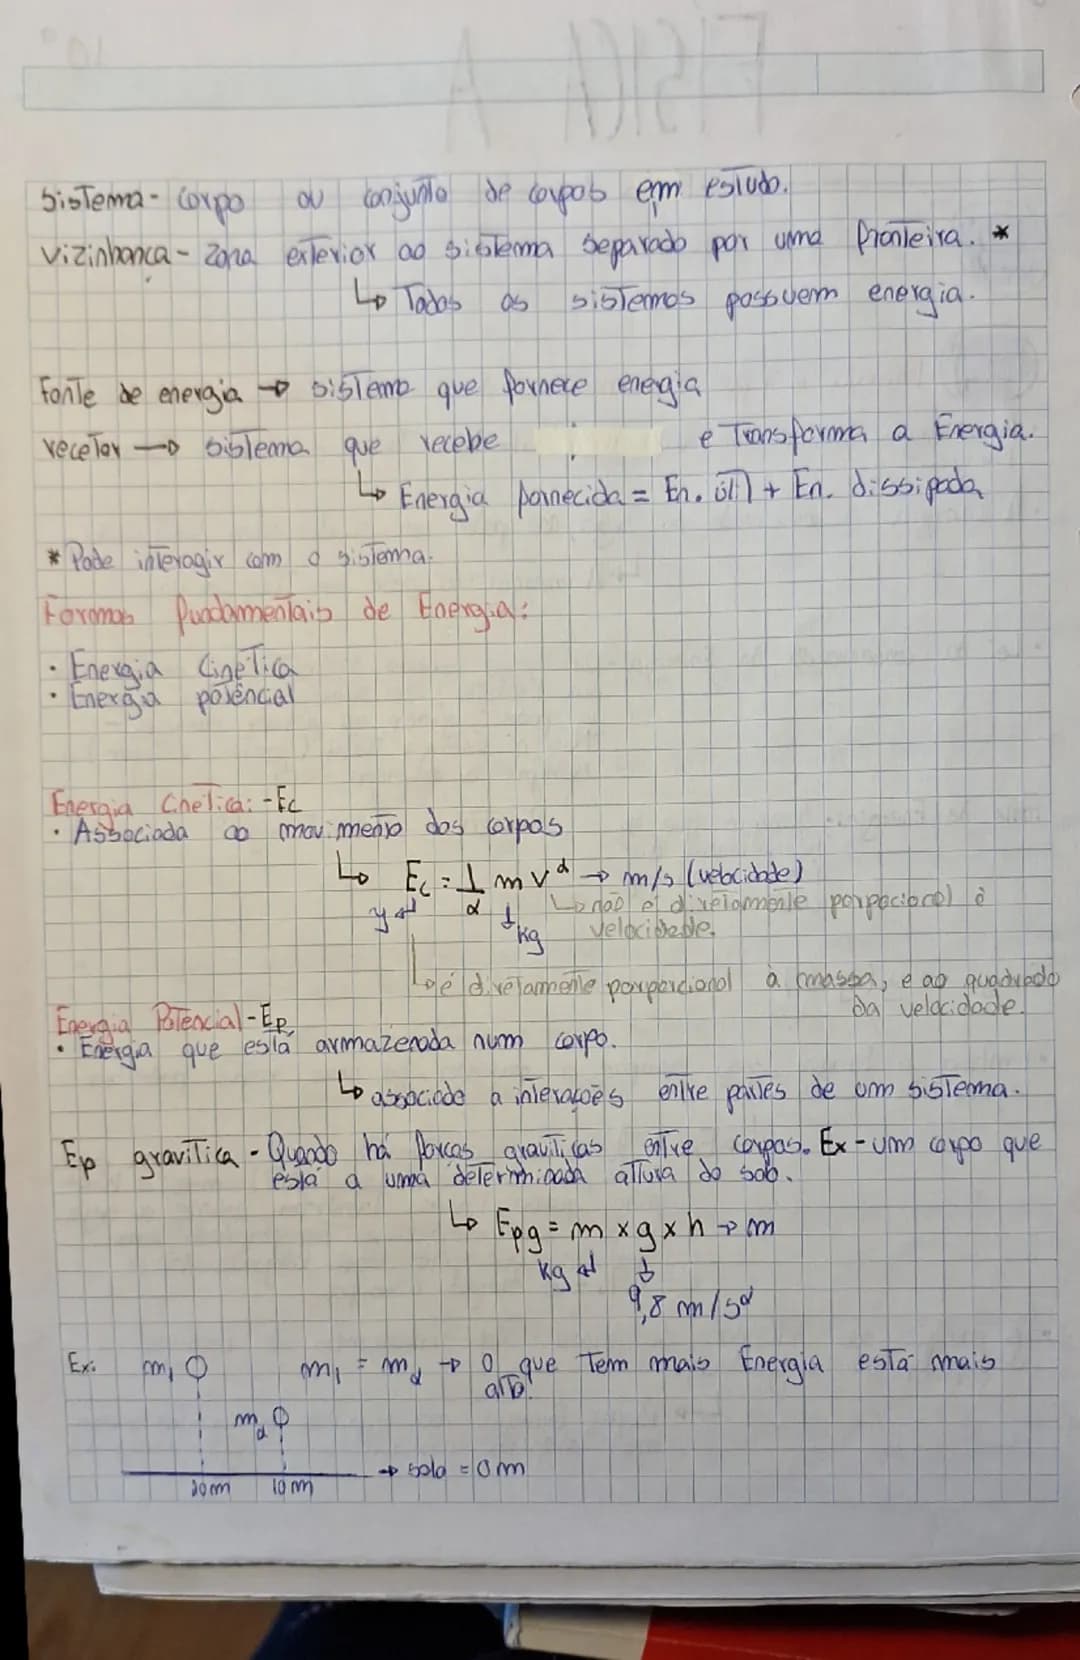 Sistema - Corpo ou conjunto de corpos em estudo.
Vizinhança - Zona exterior ao sistema separado por uma fronteira. *
↳ Todos os sistemas possuem energia.
Fonte de energia → sistema que fornece energia
recetor → sistema que recebe e Transforma a Energia.
↳ Energia fornecida = En. útil + En. dissipada
* Pode interagir com o sistema.
Formas fundamentais de Energia:
· Energia Cinética
· Energia potêncial
Energia Cinetica: - Ec
· Associada ao movimento dos corpos
↳ Ec = 1/2 m v² → m/s (velocidade)
↳ não é diretamente porporcional à
velocidade.
J ↲ ↓ kg
↳ é diretamente porporcional à massa, e ao quadrado
da velocidade.
Energia Potencial - Ep
· Energia que está armazenada num corpo.
↳ associada a interações entre partes de um sistema.
Ep gravítica - Quando há forças gravíticas entre corpos. Ex - um corpo que
está a uma determinada altura do solo.
↳ Epg = m x g x h → m
kg ↲ ↓
9,8 m/s²
Ex: m₁ m₁ = m₂ → O que Tem mais Energia está mais
alto.
m₂
→ solo = 0 m
20 m 10 m